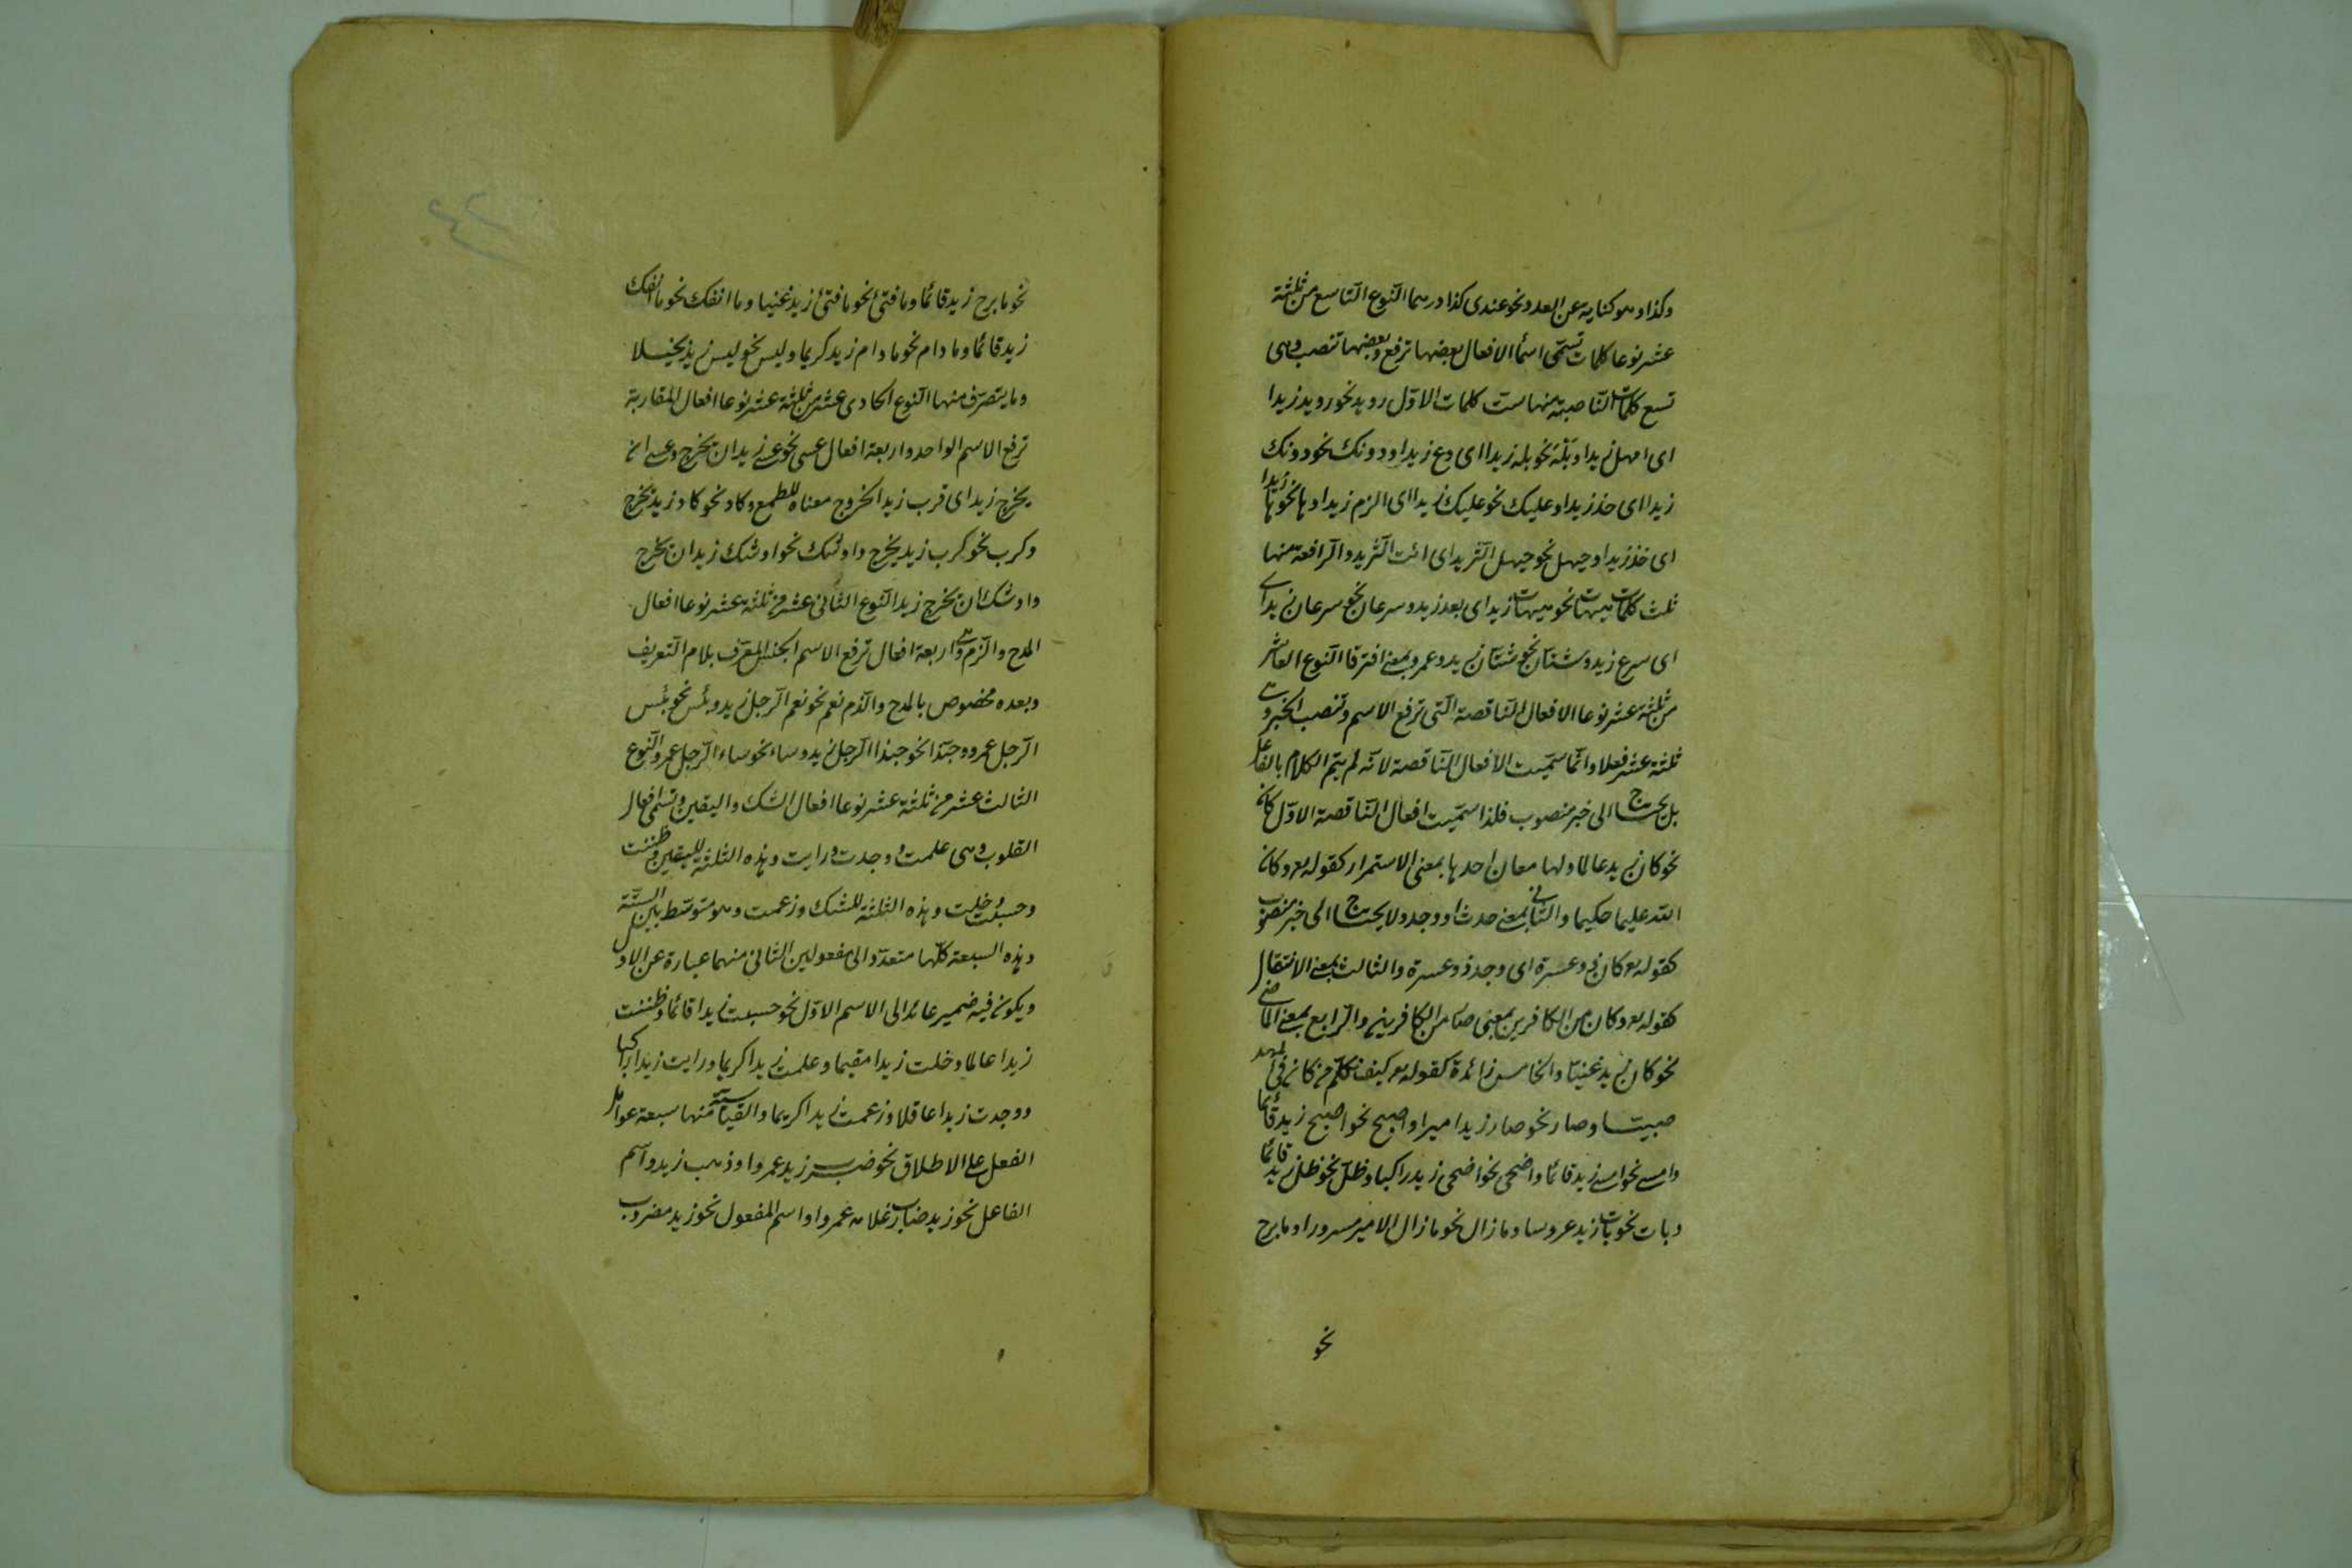 وكذا وهو كناية عن العدد نحو عندى كذا درهما النوع التاسع من ثلثة
عشر نوعا كلمات تسمّى اسما الافعال بعضها ترفع وبعضها تنصب وهى
تسع كلمات النّاصبة منها ست كلمات الاوّل رويد نحو رويد زيدا
اى امهل زيدا وبَلْهَ نحو بله زيدا اى دع زيدا ودونك نحو دونك
زيدا اى خذ زيدا وعليك نحو عليك زيدا اى الزم زيدا وها نحو ها زيدا
اى خذ زيدا وحيهل نحو حيهل الثريد اى ائت الثريد والرافعة منها
ثلث كلمات هيهات نحو هيهات زيد اى بعد زيد وسرعان نحو سرعان زيد اى
اى سرع زيد وشتّان نحو شتّان زيد وعمرو بمعنى افترقا النوع العاشر
من ثلثة عشر نوعا الافعال النّاقصة الّتى ترفع الاسم وتنصب الخبر وهى
ثلثة عشر فعلا وانّما سمّيت الافعال النّاقصة لانّه لم يتم الكلام بالفاعل
بل يحتاج الى خبر منصوب فلذا سمّيت افعال النّاقصة الاوّل كان
نحو كان زيد عالما ولها معان احدها بمعنى الاستمرار كقوله تع وكان
اللّه عليما حكيما والثّانى بمعنى حدث او وجد ولا يحتاج الى خبر منصوب
كقوله تع كان ذو عسرة اى وجد ذو عسرة والثالث بمعنى الانتقال
كقوله تع وكان من الكافرين بمعنى صار من الكافرين والرّابع بمعنى الماضى
نحو كان زيد غنيّا والخامس زائدة كقوله تع كيف نكلّم من كان فى المهد
صبيّا وصار نحو صار زيد اميرا واصبح نحو اصبح زيد قائما
وامسى نحو امسى زيد قائما واضحى نحو اضحى زيد راكبا وظلّ نحو ظل زيد قائما
وبات نحو بات زيد عروسا وما زال نحو ما زال الامير مسرورا وما برح
نحو
نحو ما برح زيد قائما وما فتئ نحو ما فتئ زيد غنيا وما انفك نحو ما انفك
زيد قائما وما دام نحو ما دام زيد كريما وليس نحو ليس زيد بخيلا
وما يتصرّف منها النّوع الحادى عشر من ثلثة عشر نوعا افعال المقاربة
ترفع الاسم الواحد واربعة افعال عسى نحو عسى زيد ان يخرج وعسى ان
يخرج زيد اى قرب زيد الخروج معناه للطمع وكاد نحو كاد زيد يخرج
وكرب نحو كرب زيد يخرج واوشك نحو اوشك زيد ان يخرج
واوشك ان يخرج زيد النّوع الثّانى عشر من ثلثة عشر نوعا افعال
المدح والذّم وهى اربعة افعال ترفع الاسم الجنس المعرّف بلام التّعريف
وبعده مخصوص بالمدح والذّم نعم نحو نعم الرّجل زيد وبئس نحو بئس
الرّجل عمرو وحبّذا نحو حبذا الرّجل زيد وساء نحو ساء الرّجل عمرو النّوع
الثالث عشر من ثلثة عشر نوعا افعال الشك واليقين وتسمّى افعال
القلوب وهى علمت ووجدت ورايت وهذه الثلثة لليقين وظننت
وحسبت وخلت وهذه الثلثة للشك وزعمت وهو متوسّط بين السّتّة
وهذه السبعة كلّها متعدّ والى مفعولين الثانى منهما عبارة عن الاول
ويكون فيه ضمير عائد الى الاسم الاوّل نحو حسبت زيدا قائما وظننت
زيدا عالما وخلت زيدا مقيما وعلمت زيدا كريما ورايت زيدا راكبا
ووجدت زيدا عاقلا وزعمت زيدا كريما والقياسيّة منها سبعة عوامل
الفعل على الاطلاق نحو ضرب زيد عمروا وذهب زيد واسم
الفاعل نحو زيد ضارب غلامه عمروا واسم المفعول نحو زيد مضروب